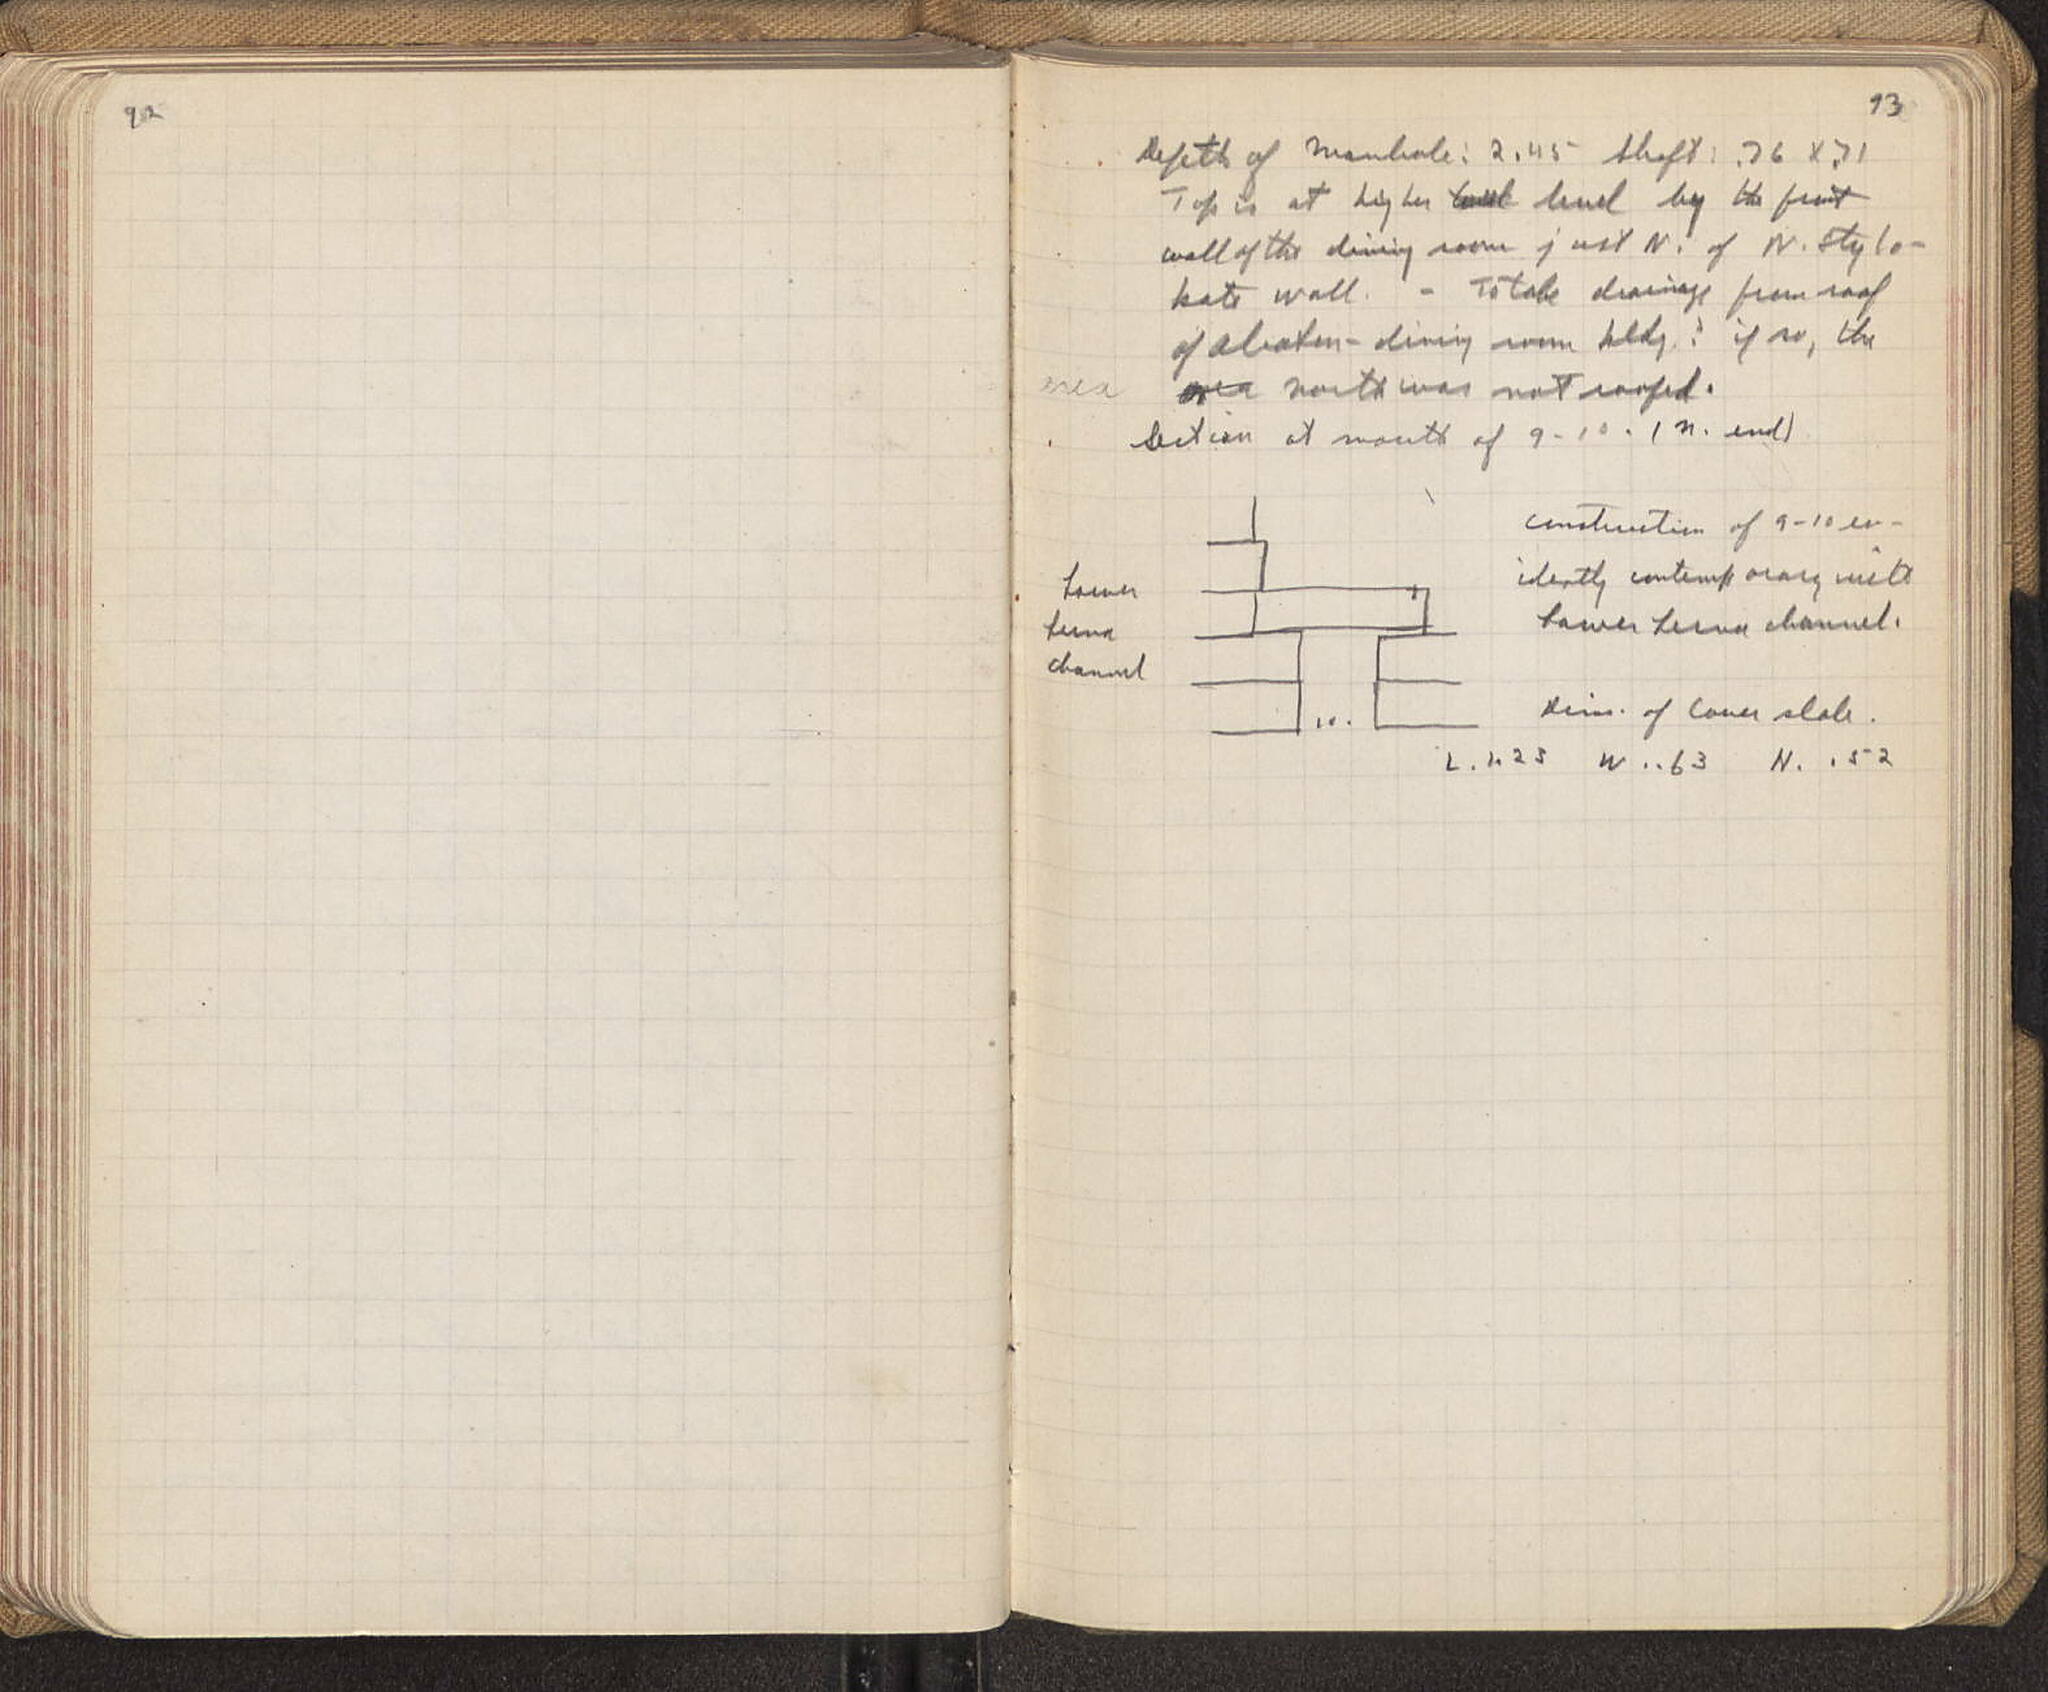 92
93
Depth of Manhole: 2.45 Shaft: .76 X .71
Top is at higher level level by the front
wall of the dining room just N. of N. Stylo-
bate wall. - To take drainage from roof
of abaton-dining room bldg.? if so, the
area area north was not roofed.
Section at mouth of 9-10. (N. end)
Construction of 9-10 ev-
idently contemporary with
Lower Lerna channel.
Lower
Lerna
channel
10.
Dim. of Cover slab.
L. 1.23 W. .63 H. .52